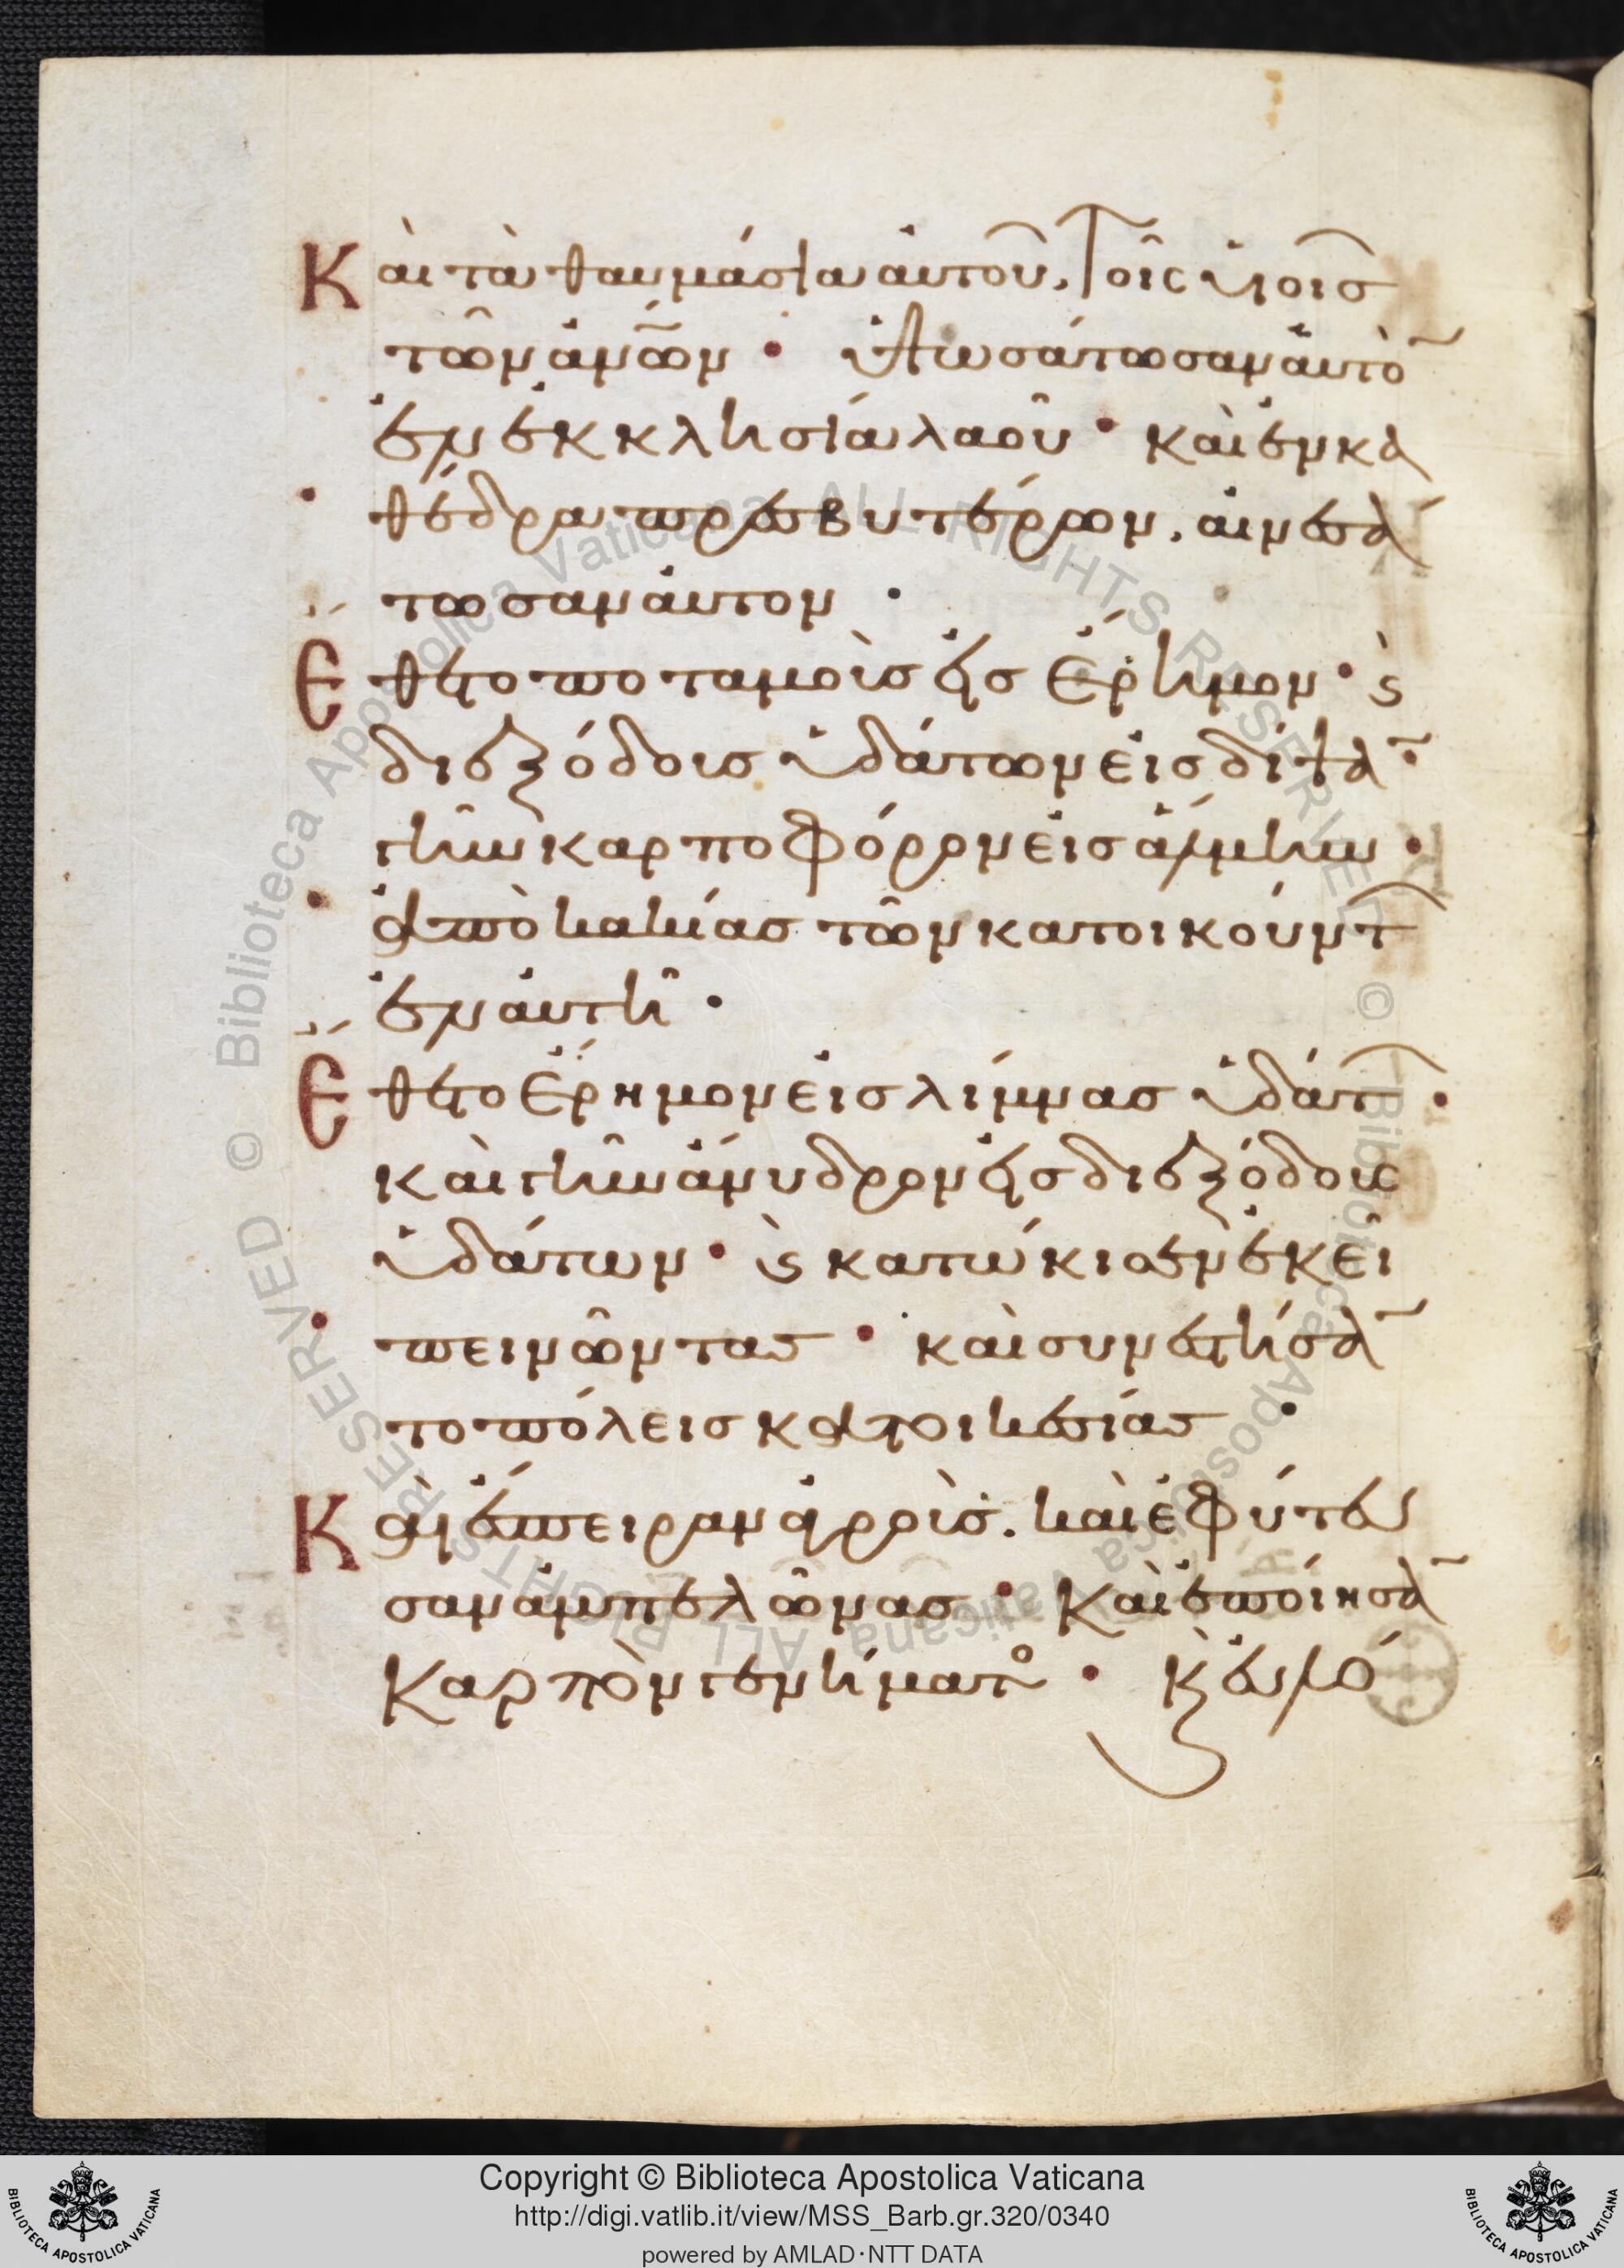 Καὶ τὰ θαυμάσια αὐτοῦ, τοῖς υἱοῖς
τῶν ἀνῶν · ὑψωσάτωσαν αὐτὸ
ἐν ἐκκλησία λαοῦ · καὶ ἐν κα
θέδρα πρεσβυτέρων, αἰνεσά
τωσαν αὐτον ·
Ἔθετο ποταμοὺς εἰς ἔρημον · ϗ
διεξόδους ὑδάτων εἰς δίψα ·
γῆν καρποφόρον εἰς ἅλμην ·
ἀπὸ κακίας τῶν κατοικούντ
ἐν αὐτῆ ·
Ἔθετο ἔρημον εἰς λίμνας ὑδάτ ·
καὶ γῆν ἄνυδρον εἰς διεξόδους
ὑδάτων · ϗ κατώκισεν ἐκεῖ
πεινῶντας · καὶ συνεστήσα
το πόλεις κατοικεσίας ·
Καὶ ἔσπειραν ἀγροὺς. καὶ ἐφύτευ
σαν ἀμπελῶνας · καὶ ἐποίησα
καρπὸν γενήματο · κ εὐλό
© Biblioteca Apostolica Vaticana ALL RIGHTS RESERVED
© Biblioteca Apostolica Vaticana ALL RIGHTS RESERVED
Copyright © Biblioteca Apostolica Vaticana
http://digi.vatlib.it/view/MSS_Barb.gr.320/0340
powered by AMLAD·NTT DATA
BIBLIOTECA APOSTOLICA VATICANA
BIBLIOTECA APOSTOLICA VATICANA